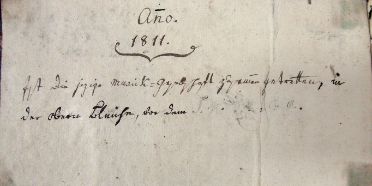 Año.
1811.
Ist die jezige Musick=Gesellschaft zusammen getretten, in
der obern Klause, vor dem